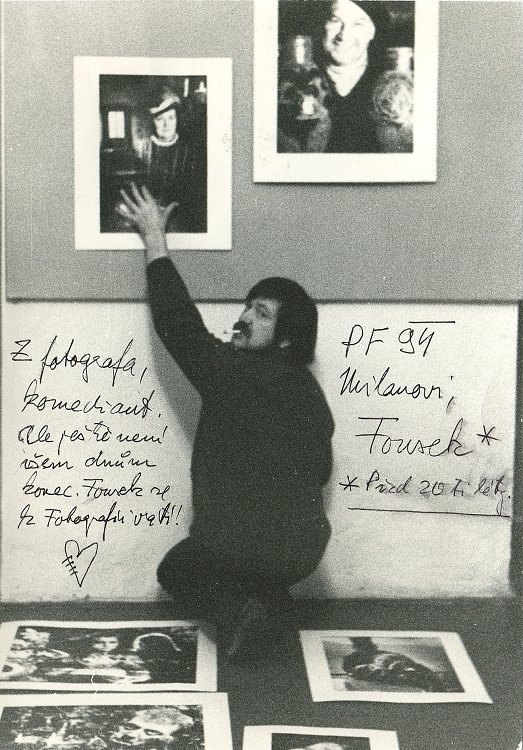 Z fotografa,
komediant.
Ale ještě není
všem dnům
konec. Fousek se
k Fotografii vrátí!!
PF 94
Milanovi,
Fousek *
* Před 20ti léty.